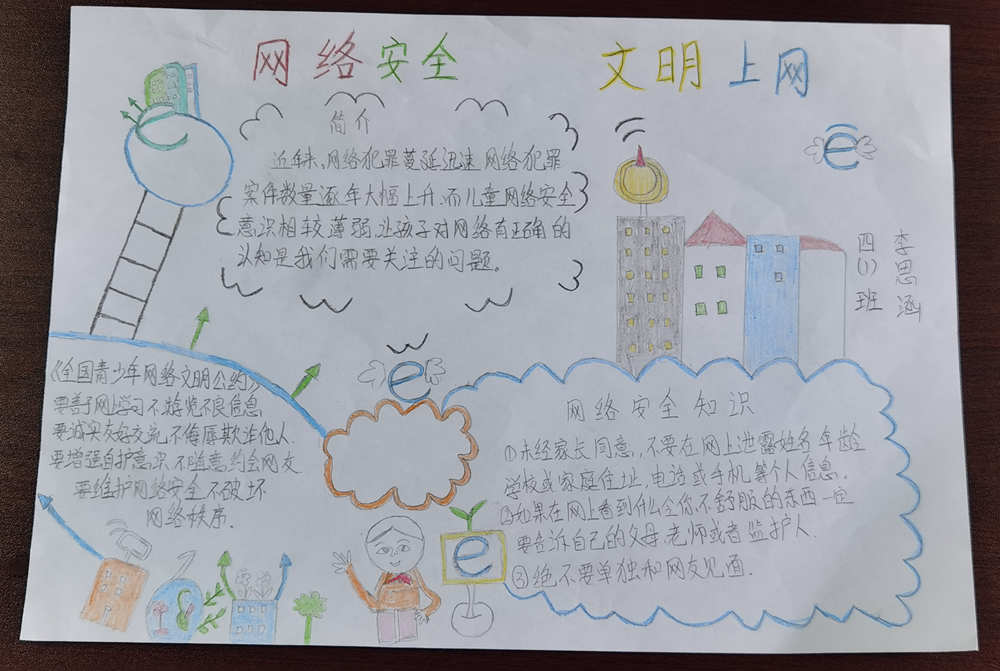 网络安全 文明上网
简介
近年来,网络犯罪蔓延迅速,网络犯罪
案件数量逐年大幅上升,而儿童网络安全
意识相较薄弱,让孩子对网络有正确的
认知是我们需要关注的问题。
e
李思涵
四(1)班
《全国青少年网络文明公约》
要善于网上学习 不游览不良信息
要诚实友好交流 不侮辱欺诈他人.
要增强自护意识 不随意约会网友
要维护网络安全 不破坏
网络秩序.
e
e
网络安全知识
①未经家长同意,不要在网上泄露姓名年龄
学校或家庭住址,电话或手机等个人信息.
②如果在网上看到什么令你不舒服的东西一定
要告诉自己的父母,老师或者监护人.
③绝不要单独和网友见面.